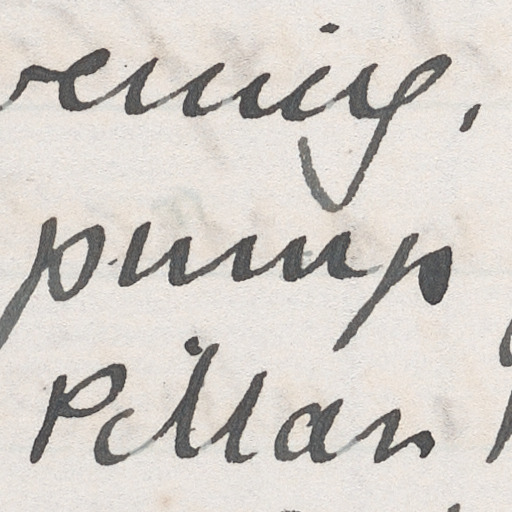 vening,
pump
Pillar